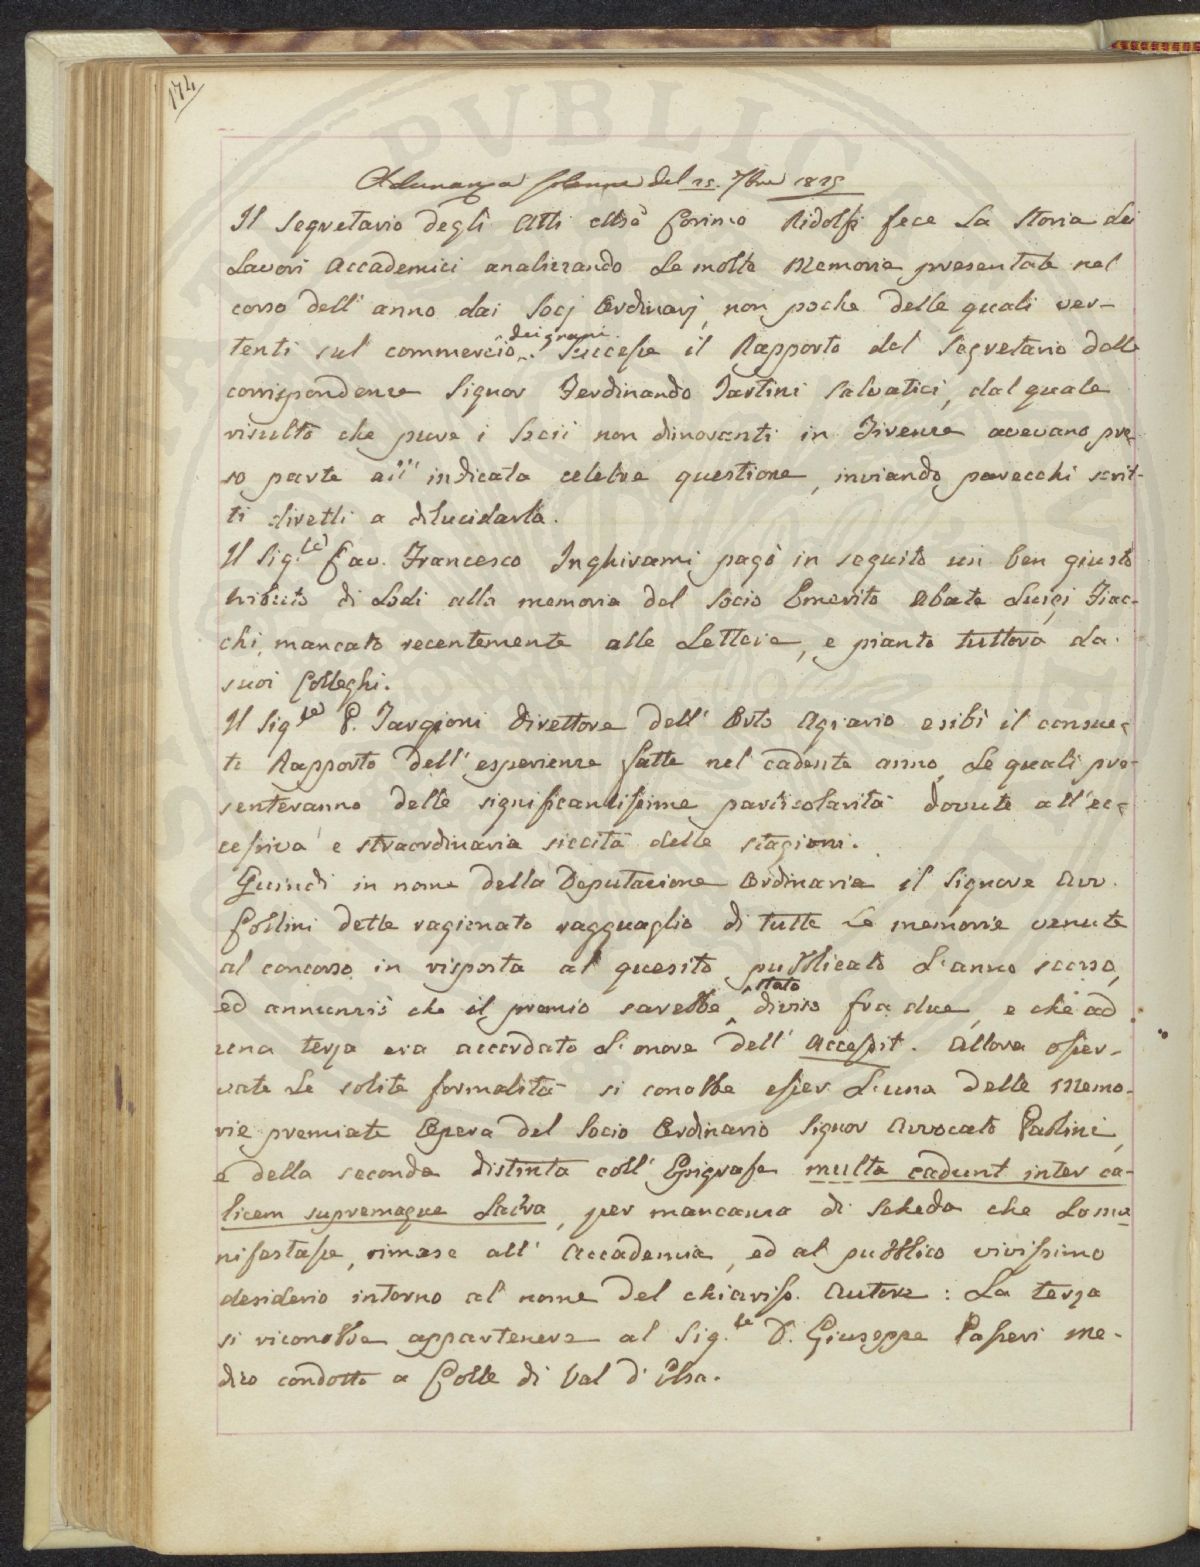 174
Adunanza solenne del 25. 7bre 1825
Il Segretario degli Atti Cosimo Ridolfi fece la Storia dei
Lavori Accademici analizzando le molte Memorie presentate nel
corso dell'anno dai Socj Ordinarj, non poche delle quali ver-
tenti sul commercio dei grani. Successe il Rapporto del Segretario delle
corrispondenze Signor Ferdinando Tartini Salvatici, dal quale
risultò che pure i Socii non dimoranti in Firenze avevano pre-
so parte all'indicata celebre questione, inviando parecchi scrit-
ti diretti a dilucidarla.
Il Sig.re Cav. Francesco Inghirami pagò in seguito un ben giusto
tributo di Lodi alla memoria del Socio Emerito Abate Luigi Fiac-
chi, mancato recentemente alle Lettere, e pianto tuttora da
suoi Colleghi.
Il Sig.re P. Targioni Direttore dell'Orto Agrario esibì il consue-
to Rapporto dell'esperienze fatte nel cadente anno, le quali pre-
senteranno delle significantissime particolarità dovute all'ec-
cessiva e straordinaria siccità delle stagioni.
Quindi in nome della Deputazione Ordinaria il Signore Avv.
Collini dette ragionato ragguaglio di tutte le memorie venute
al concorso in risposta al quesito pubblicato l'anno scorso,
ed annunziò che il premio sarebbe stato diviso fra due, e che ad
una terza era accordato l'onore dell'Accessit. Allora osser-
vate le solite formalità si conobbe esser l'una delle Memo-
rie premiate Opera del Socio Ordinario Signor Avvocato Paolini,
e della seconda distinta coll'Epigrafe multa cadunt inter ca-
licem supremaque Labra, per mancanza di Scheda che lo ma
nifestasse, rimase all'Accademia, ed al pubblico vivissimo
desiderio intorno al nome del chiariss. Autore: La terza
si riconobbe appartenere al Sig.re D. Giuseppe Passeri Me-
dico condotto a Colle di Val d'Elsa.